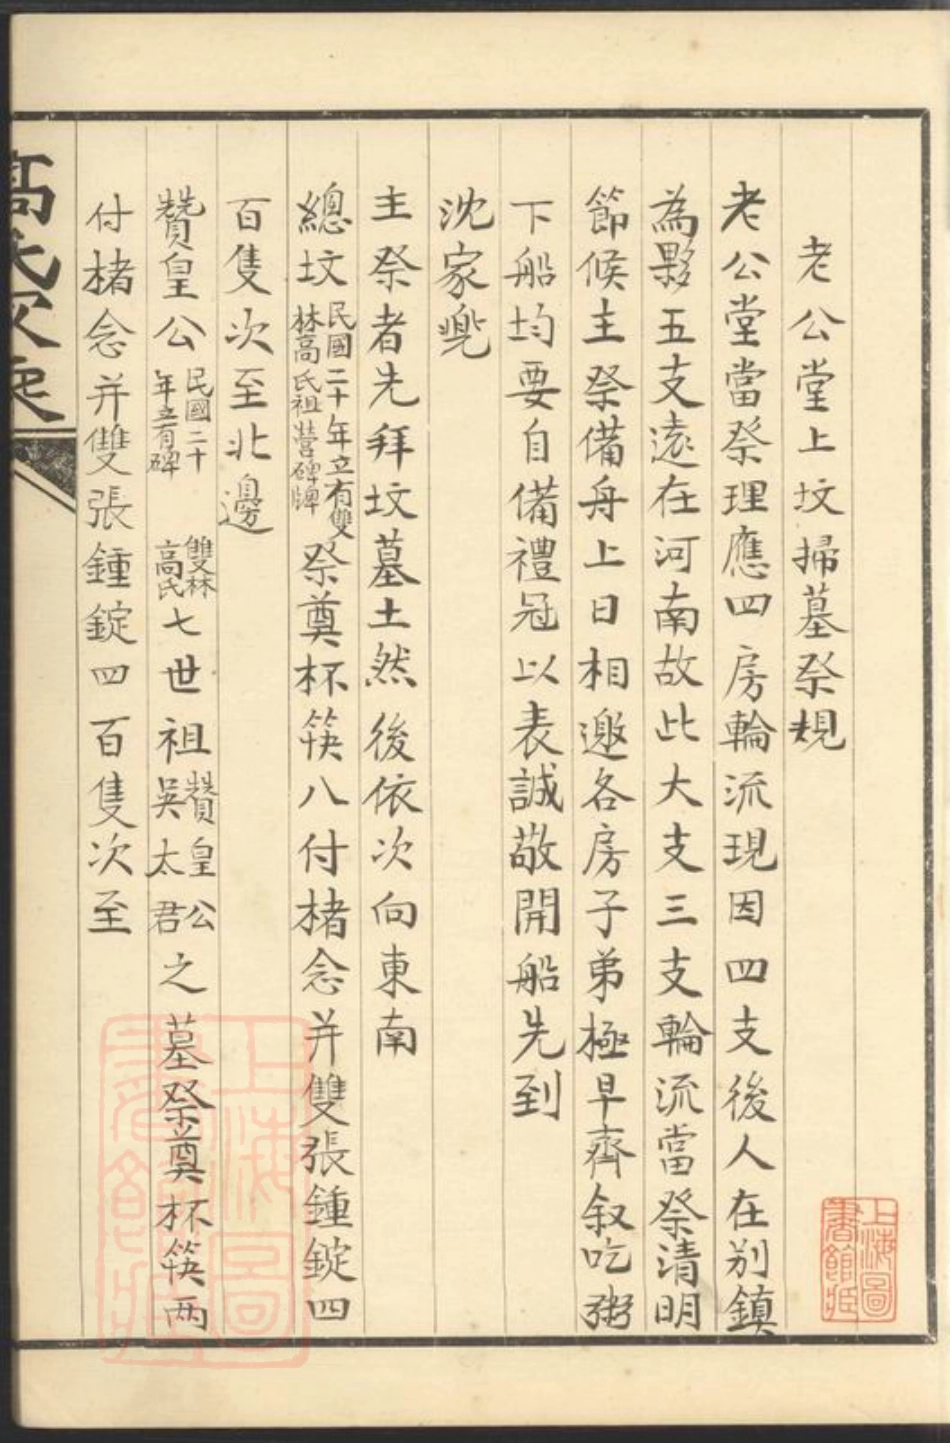 老公堂上坟掃墓祭規
老公堂當祭理應四房輪流現因四支後人在别鎮
為夥五支遠在河南故此大支三支輪流當祭清明
節候主祭備舟上日相邀各房子弟極早齊叙吃粥
下船均要自備禮冠以表誠敬開船先到
沈家兠
主祭者先拜坟墓土然後依次向東南
總坟民國二十年立有雙林高氏祖塋碑牌祭奠杯筷八付楮念并雙張錘錠四
百隻次至北邊
贊皇公民國二十年立有碑 雙林高氏七世祖贊皇公吳太君之墓祭奠杯筷两
付楮念并雙張錘錠四百隻次至
高氏家
上海圖書館藏
上海圖書館藏